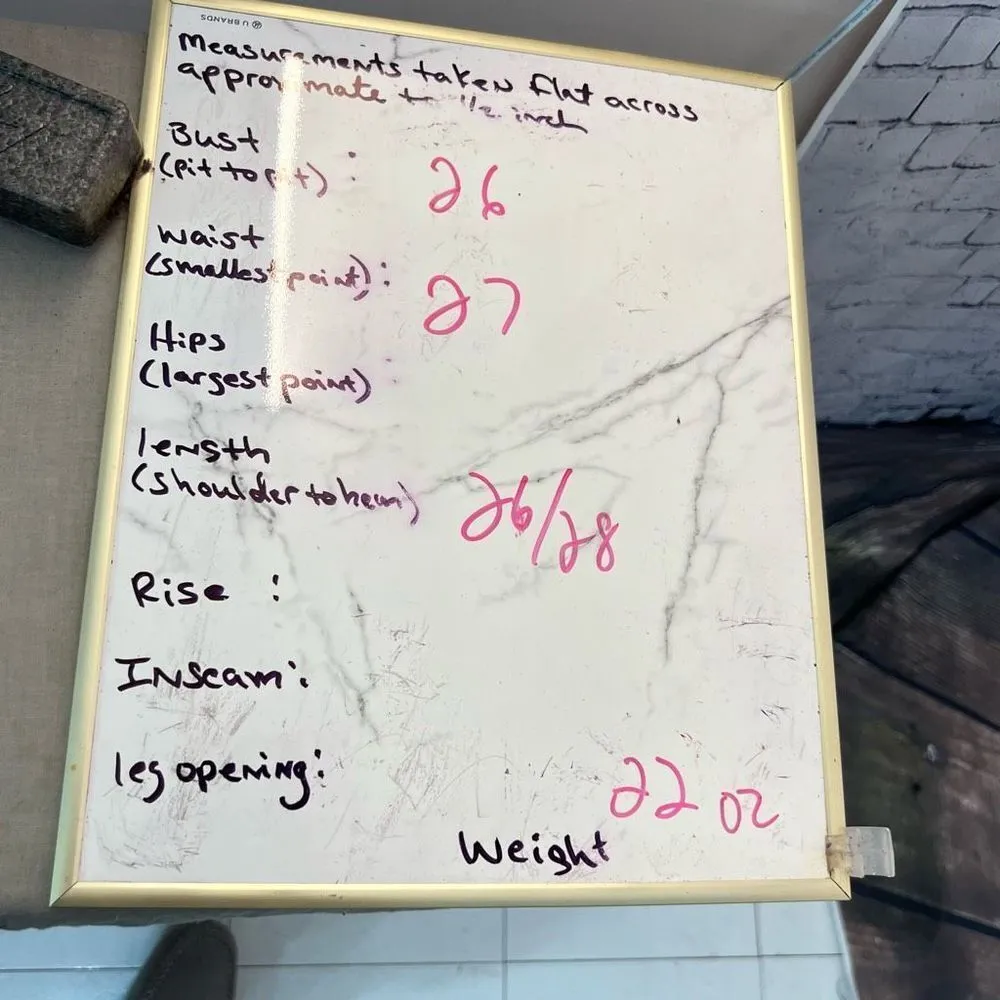 U BRANDS
Measurements taken flat across
approximate to 1/2 inch
Bust
(pit to pit) : 26
waist
(smallest point): 27
Hips
(largest point)
length
(shoulder to hem) 26/28
Rise :
Inseam:
leg opening:
22 oz
Weight